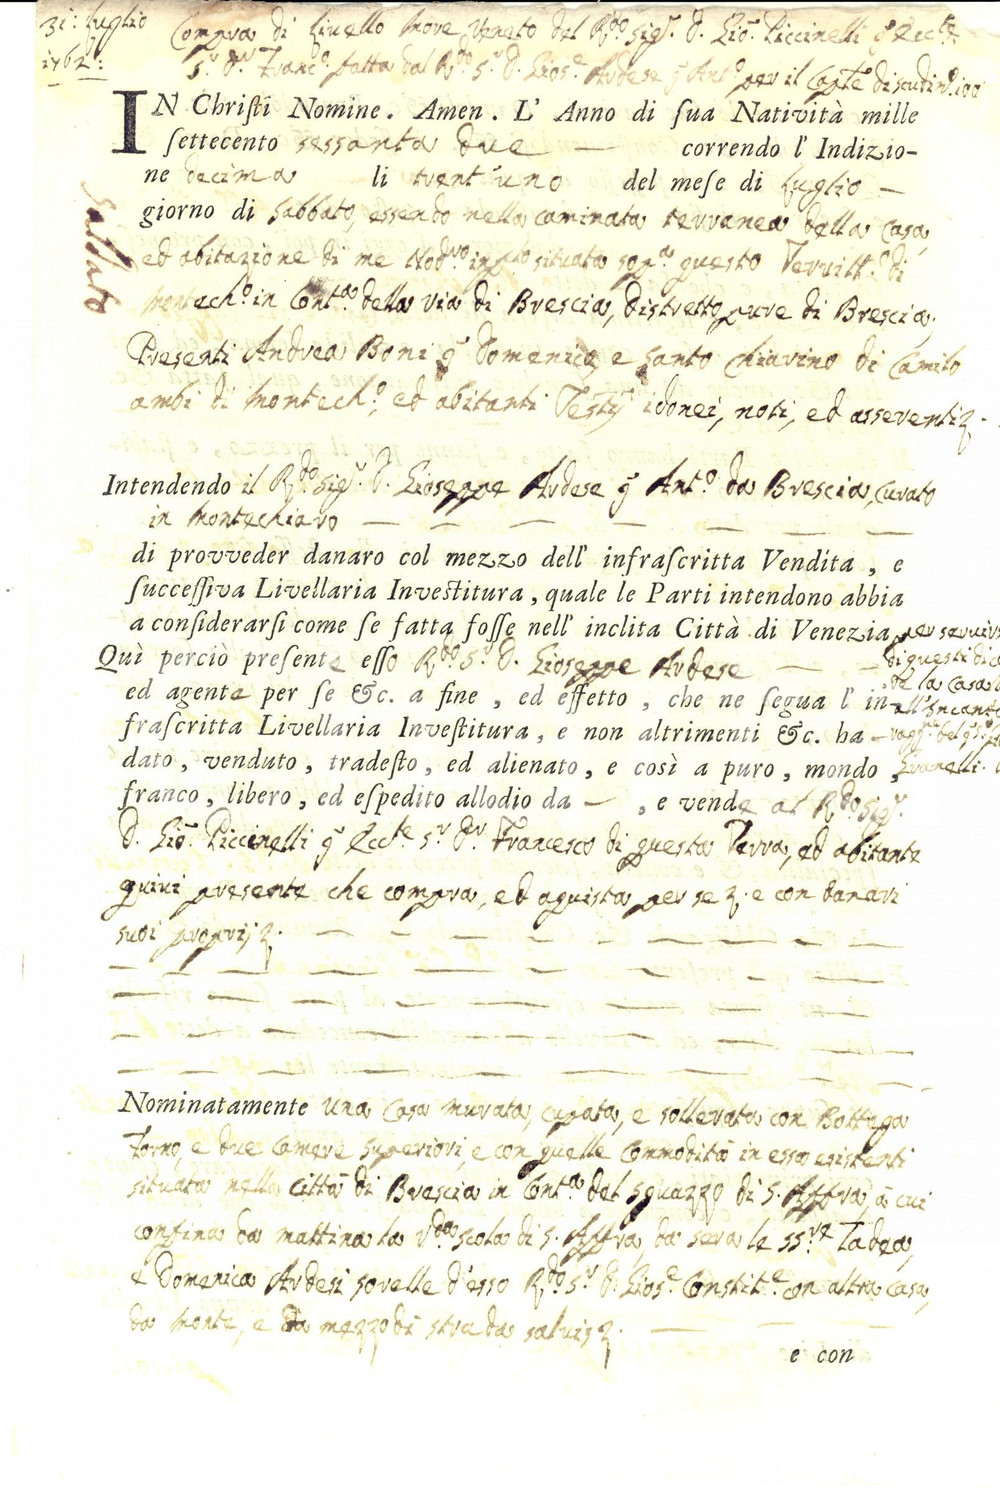 31: Luglio
1762:
Compra di Livello More Veneto del R.do Sig.r D. Gio: Piccinelli q. Ecc.te
S.r D.r Franc.o fatta dal R.do S.r D. Gios.e Ardese q. Ant.o per il Capit.e di scudi
IN Chriſti Nomine. Amen. L' Anno di ſua Natività mille
ſettecento sessanta due — correndo l' Indizio-
ne decima li trent'uno del meſe di Luglio —
giorno di Sabbato, essendo nella caminata terranea della casa,
ed abitazione di me Nod.ro inf.to situata sop.a questo Territ.o di
Montech.o in Cont.a della via di Brescia, distretto pure di Brescia.
Saldato
Presenti Andrea Boni q. Domenico, e Santo Chiarino di Camilo
ambi di Montech.o, ed abitanti Testij idonei, noti, ed asserenti &.
Intendendo il R.do Sig.r D. Gioseppe Ardese q. Ant.o da Brescia, Curato
in Montechiaro — — — — — — —
di provveder danaro col mezzo dell' infraſcritta Vendita, e
ſucceſſiva Livellaria Inveſtitura, quale le Parti intendono abbia
a conſiderarſi come ſe fatta foſſe nell' inclita Città di Venezia per servirsi
di questi
de la casa
all'Incanto
Quì perciò preſente eſſo R.do S.r D. Gioseppe Ardese — —
ed agente per ſe &c. a fine, ed effetto, che ne ſegua l' in-
fraſcritta Livellaria Inveſtitura, e non altrimenti &c. ha
dato, venduto, tradeſto, ed alienato, e così a puro, mondo,
franco, libero, ed eſpedito allodio da — , e vende al R.do Sig.r
D. Gio: Piccinelli q. Ecc.te S.r D.r Francesco di questa Terra, ed abitante
quivi presente che compra, ed aquista per se &. e con danari
suoi proprij &. — — — — — — —
Nominatamente una casa murata, cupata, e sollerata con Bottega
Forno, e due Camere superiori, e con quelle commodità in essa esistenti
situata nella città di Brescia in Cont.a del Sguazzo di S. Affra, à cui
confina da mattina la V.da scola di S. Affra da sera le SS.re Tadea,
e Domenica Ardesi sorelle d'esso R.do S.r D. Gios.e Constit.e con altra casa,
da Monte, e da mezzodì strada salvis &. — — —
e con